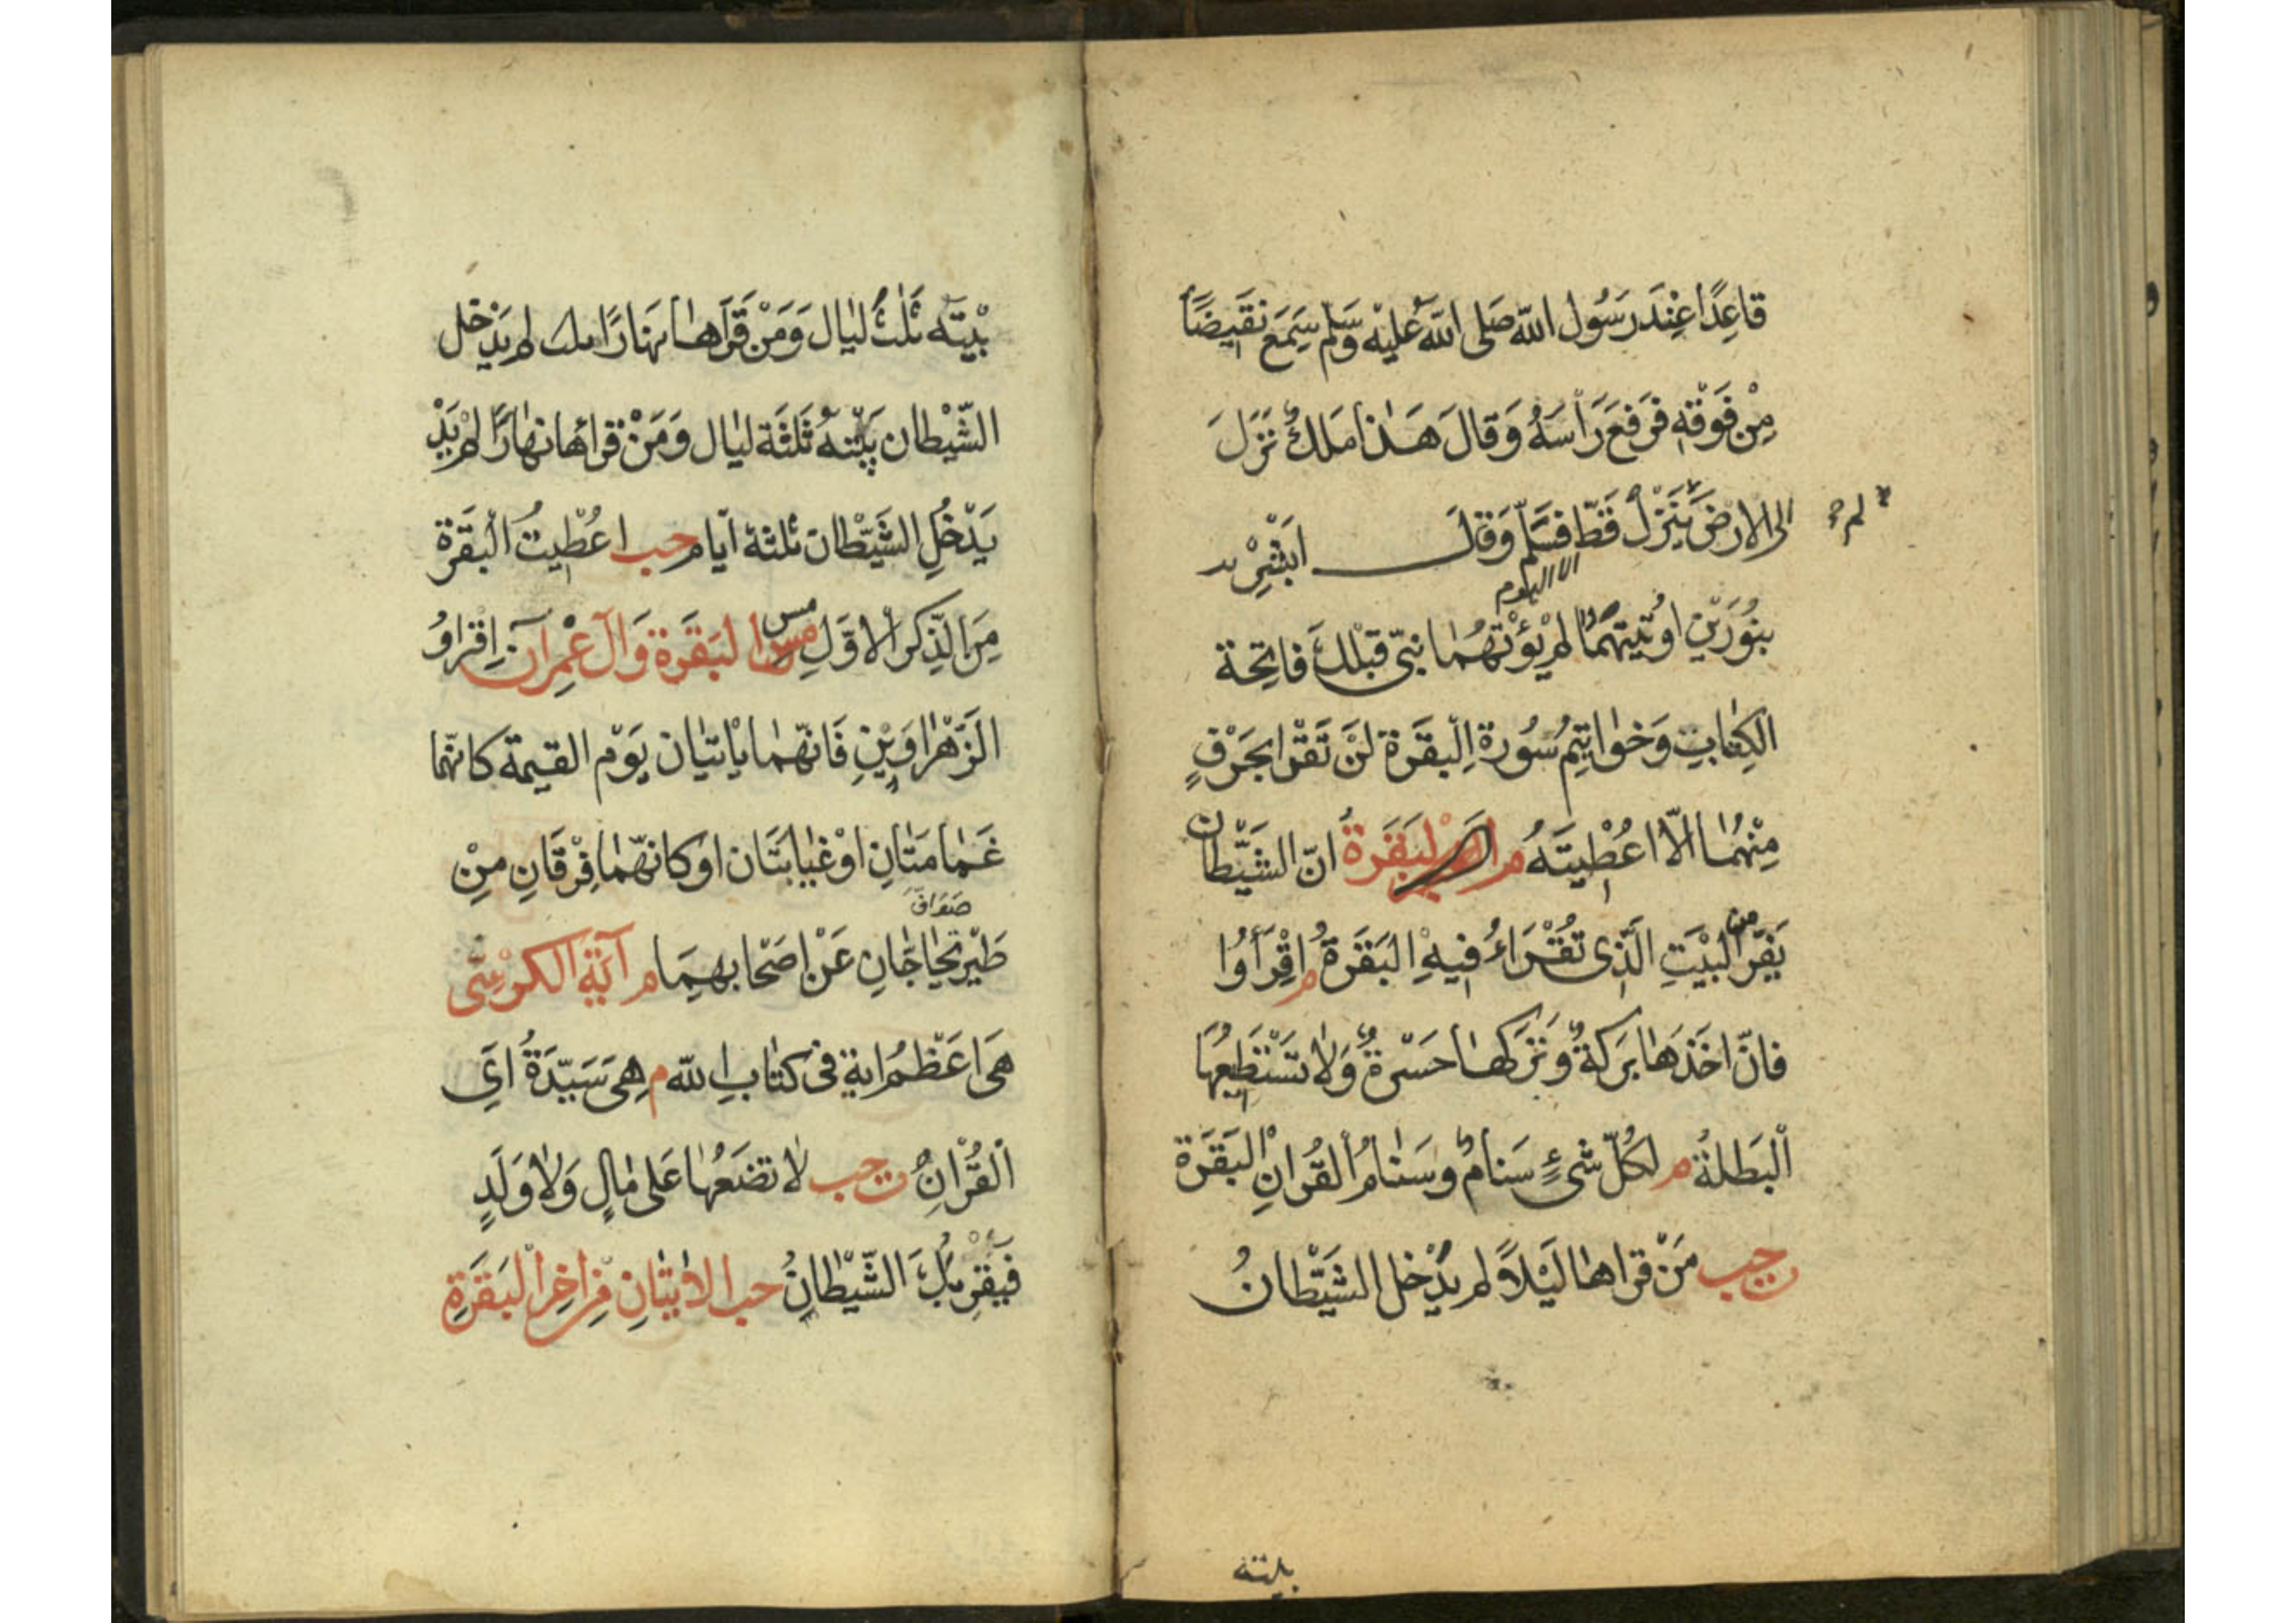 قاعِدًا عِنْدَ رَسُول اللّه صَلى اللّه عَليْه وَسَلم سَمِعَ نَقيضًا
مِنْ فَوْقِه فَرَفعَ رَأسَهُ وَقالَ هَذا مَلكٌ نَزَلَ
الى الارض يَنْزِلْ قَطّ فسَلّم وَقالَ ابَشْرِ
لم
الا اليوم
بنُورَيْنِ اوُتيتَهُمَا لم يُؤْتَهُما نبىّ قبْلكَ فاتِحة
الكِتابِ وَخواتِيمُ سُورة البقَرَة لنْ تَقْرا بحَرْفٍ
مِنْهُما الاّ اعُطْيتَهُ م البَقَرَةُ انّ الشيَّطان
يَفِرّ من البْيَتِ الّذى تُقْرَاءُ فيهِ البَقَرَةُ م اِقْرَأوُا
فانّ اخَذَها بَركةٌ وَتَركها حَسْرةٌ وَلا تسْتَطيعُهَا
البَطلةُ م لكُلّ شئٍ سَنامٌ وسَنامُ القُرانِ البَقَرَة
حب مَنْ قراها ليَلاً لم يَدْخل الشيَّطانُ
بيته
بيْتَه ثلثَ ليَال وَمَنْ قَرَاهَا نهَارًا لم يَدْخل
الشّيْطان بيْتهُ ثَلثَة ليال وَمَنْ قراها نهارًا لم يَدْ
يَدْخُلِ الشيَّطان ثلثة ايّام حب اعُطْيتُ البَقَرة
مِنَ الذِّكر الاوَّلِ مس البَقَرَة وَآل عِمْرآن اِقراوُ
مس
الزَهْراوَيْنِ فَانهّما يأتيان يَوْم القيمة كانهّما
غَمامَتانِ اوْ غيابتَان او كانهّما فِرْقَانِ مِنْ
صَوَافّ
طَيْرٍ تحُاجّانِ عَنْ اصَحابهِمَا م آيَة الكرْسِىّ
هىَ اعَظمُ اية فى كتاب اللّه م هِىَ سَيّدَةُ اىَ
القُرْانِ حب لا تضَعُها عَلى مٰالٍ وَلا وَلَدٍ
فيَقرَبُكَ الشّيْطانُ حب الايتانِ مِن اخِر البَقَرَةِ